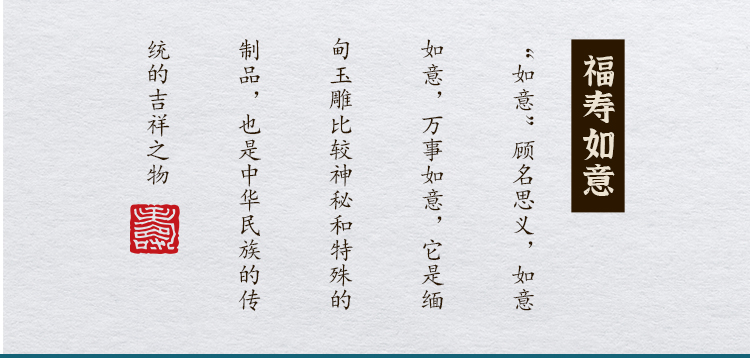 福寿如意
“如意”顾名思义，如意
如意，万事如意，它是缅
甸玉雕比较神秘和特殊的
制品，也是中华民族的传
统的吉祥之物